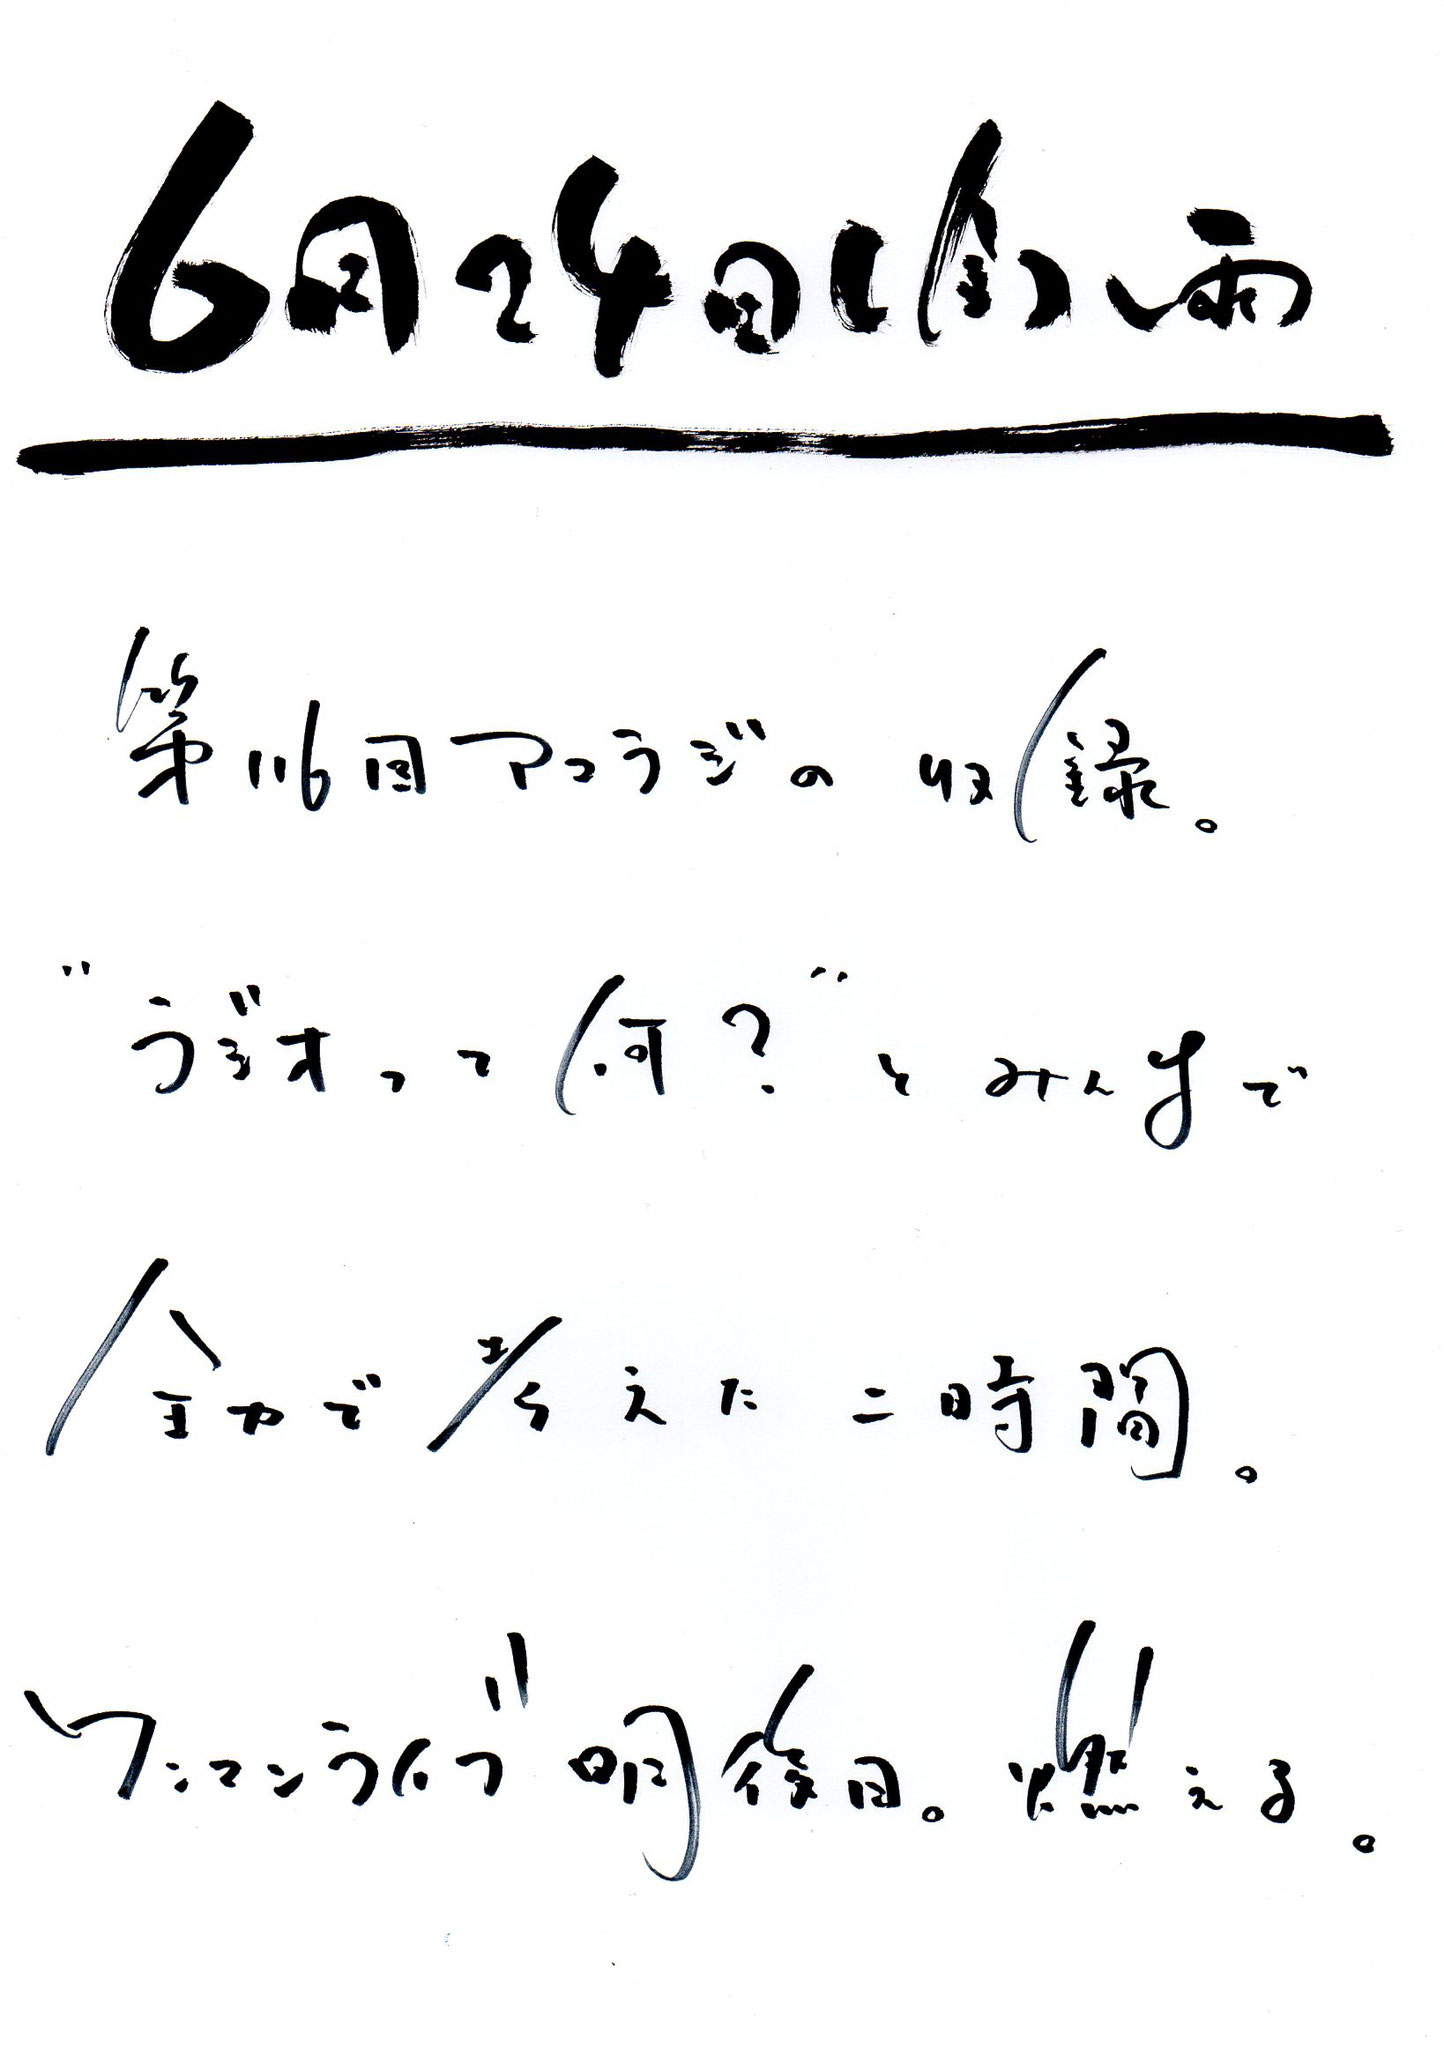 6月24日(金)雨
第116回アコラジの収録。
"ラジオって何?"とみんなで
全力で考えた二時間。
ワンマンライブ明後日。燃える。